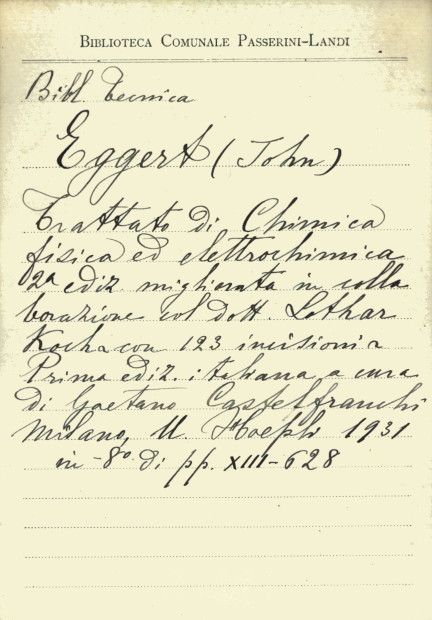 BIBLIOTECA COMUNALE PASSERINI-LANDI
Bibl Tecnica
Eggert (John)
Trattato di Chimica
fisica ed elettrochimica
2ª ediz migliorata in colla
borazione col dott. Lothar
Kocha con 123 incisioni
Prima ediz. italiana a cura
di Gaetano Castelfranchi
Milano, U. Hoepli 1931
in-8º di pp. XIII-628